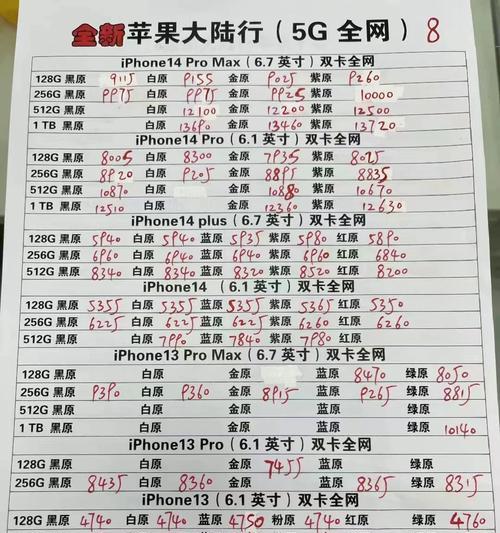 全新苹果大陆行（5G 全网） 8
iPhone14 Pro Max（6.7 英寸）双卡全网
128G 黑原 9115 白原 9155 金原 9025 紫原 9260
256G 黑原 9975 白原 9975 金原 9925 紫原 10000
512G 黑原 白原 12100 金原 12200 紫原 12500
1 TB 黑原 白原 13690 金原 13460 紫原 13720
iPhone14 Pro（6.1 英寸）双卡全网
128G 黑原 8005 白原 8300 金原 7935 紫原 8025
256G 黑原 8920 白原 9205 金原 8895 紫原 8835
512G 黑原 10870 白原 金原 10880 紫原 10670
1 TB 黑原 12510 白原 金原 12360 紫原 12630
iPhone14 plus（6.7 英寸）双卡全网
128G 黑原 5940 白原 5940 蓝原 5935 紫原 5980 红原 5890
256G 黑原 6960 白原 6940 蓝原 6940 紫原 6960 红原 6840
512G 黑原 8340 白原 8340 蓝原 8320 紫原 8520 红原 8200
iPhone14 （6.1 英寸）双卡全网
128G 黑原 5355 白原 5355 蓝原 5355 紫原 5365 红原 5350
256G 黑原 6225 白原 6225 蓝原 6225 紫原 6260 红原 6260
512G 黑原 白原 7990 蓝原 7840 紫原 7980 红原
iPhone13 Pro Max（6.7 英寸）双卡全网
128G 黑原 白原 金原 蓝原 8470 绿原 8050
256G 黑原 9390 白原 9360 金原 8915 蓝原 9265 绿原 8815
512G 黑原 白原 金原 蓝原 绿原
1 TB 黑原 白原 金原 蓝原 绿原 10140
iPhone13 Pro（6.1 英寸）双卡全网
128G 黑原 白原 金原 7455 蓝原 绿原
256G 黑原 8435 白原 8360 金原 蓝原 8365 绿原 8315
iPhone13（6.1 英寸）双卡全网
128G 黑原 4740 白原 4740 蓝原 4750 粉原 4740 红原 绿原 4760